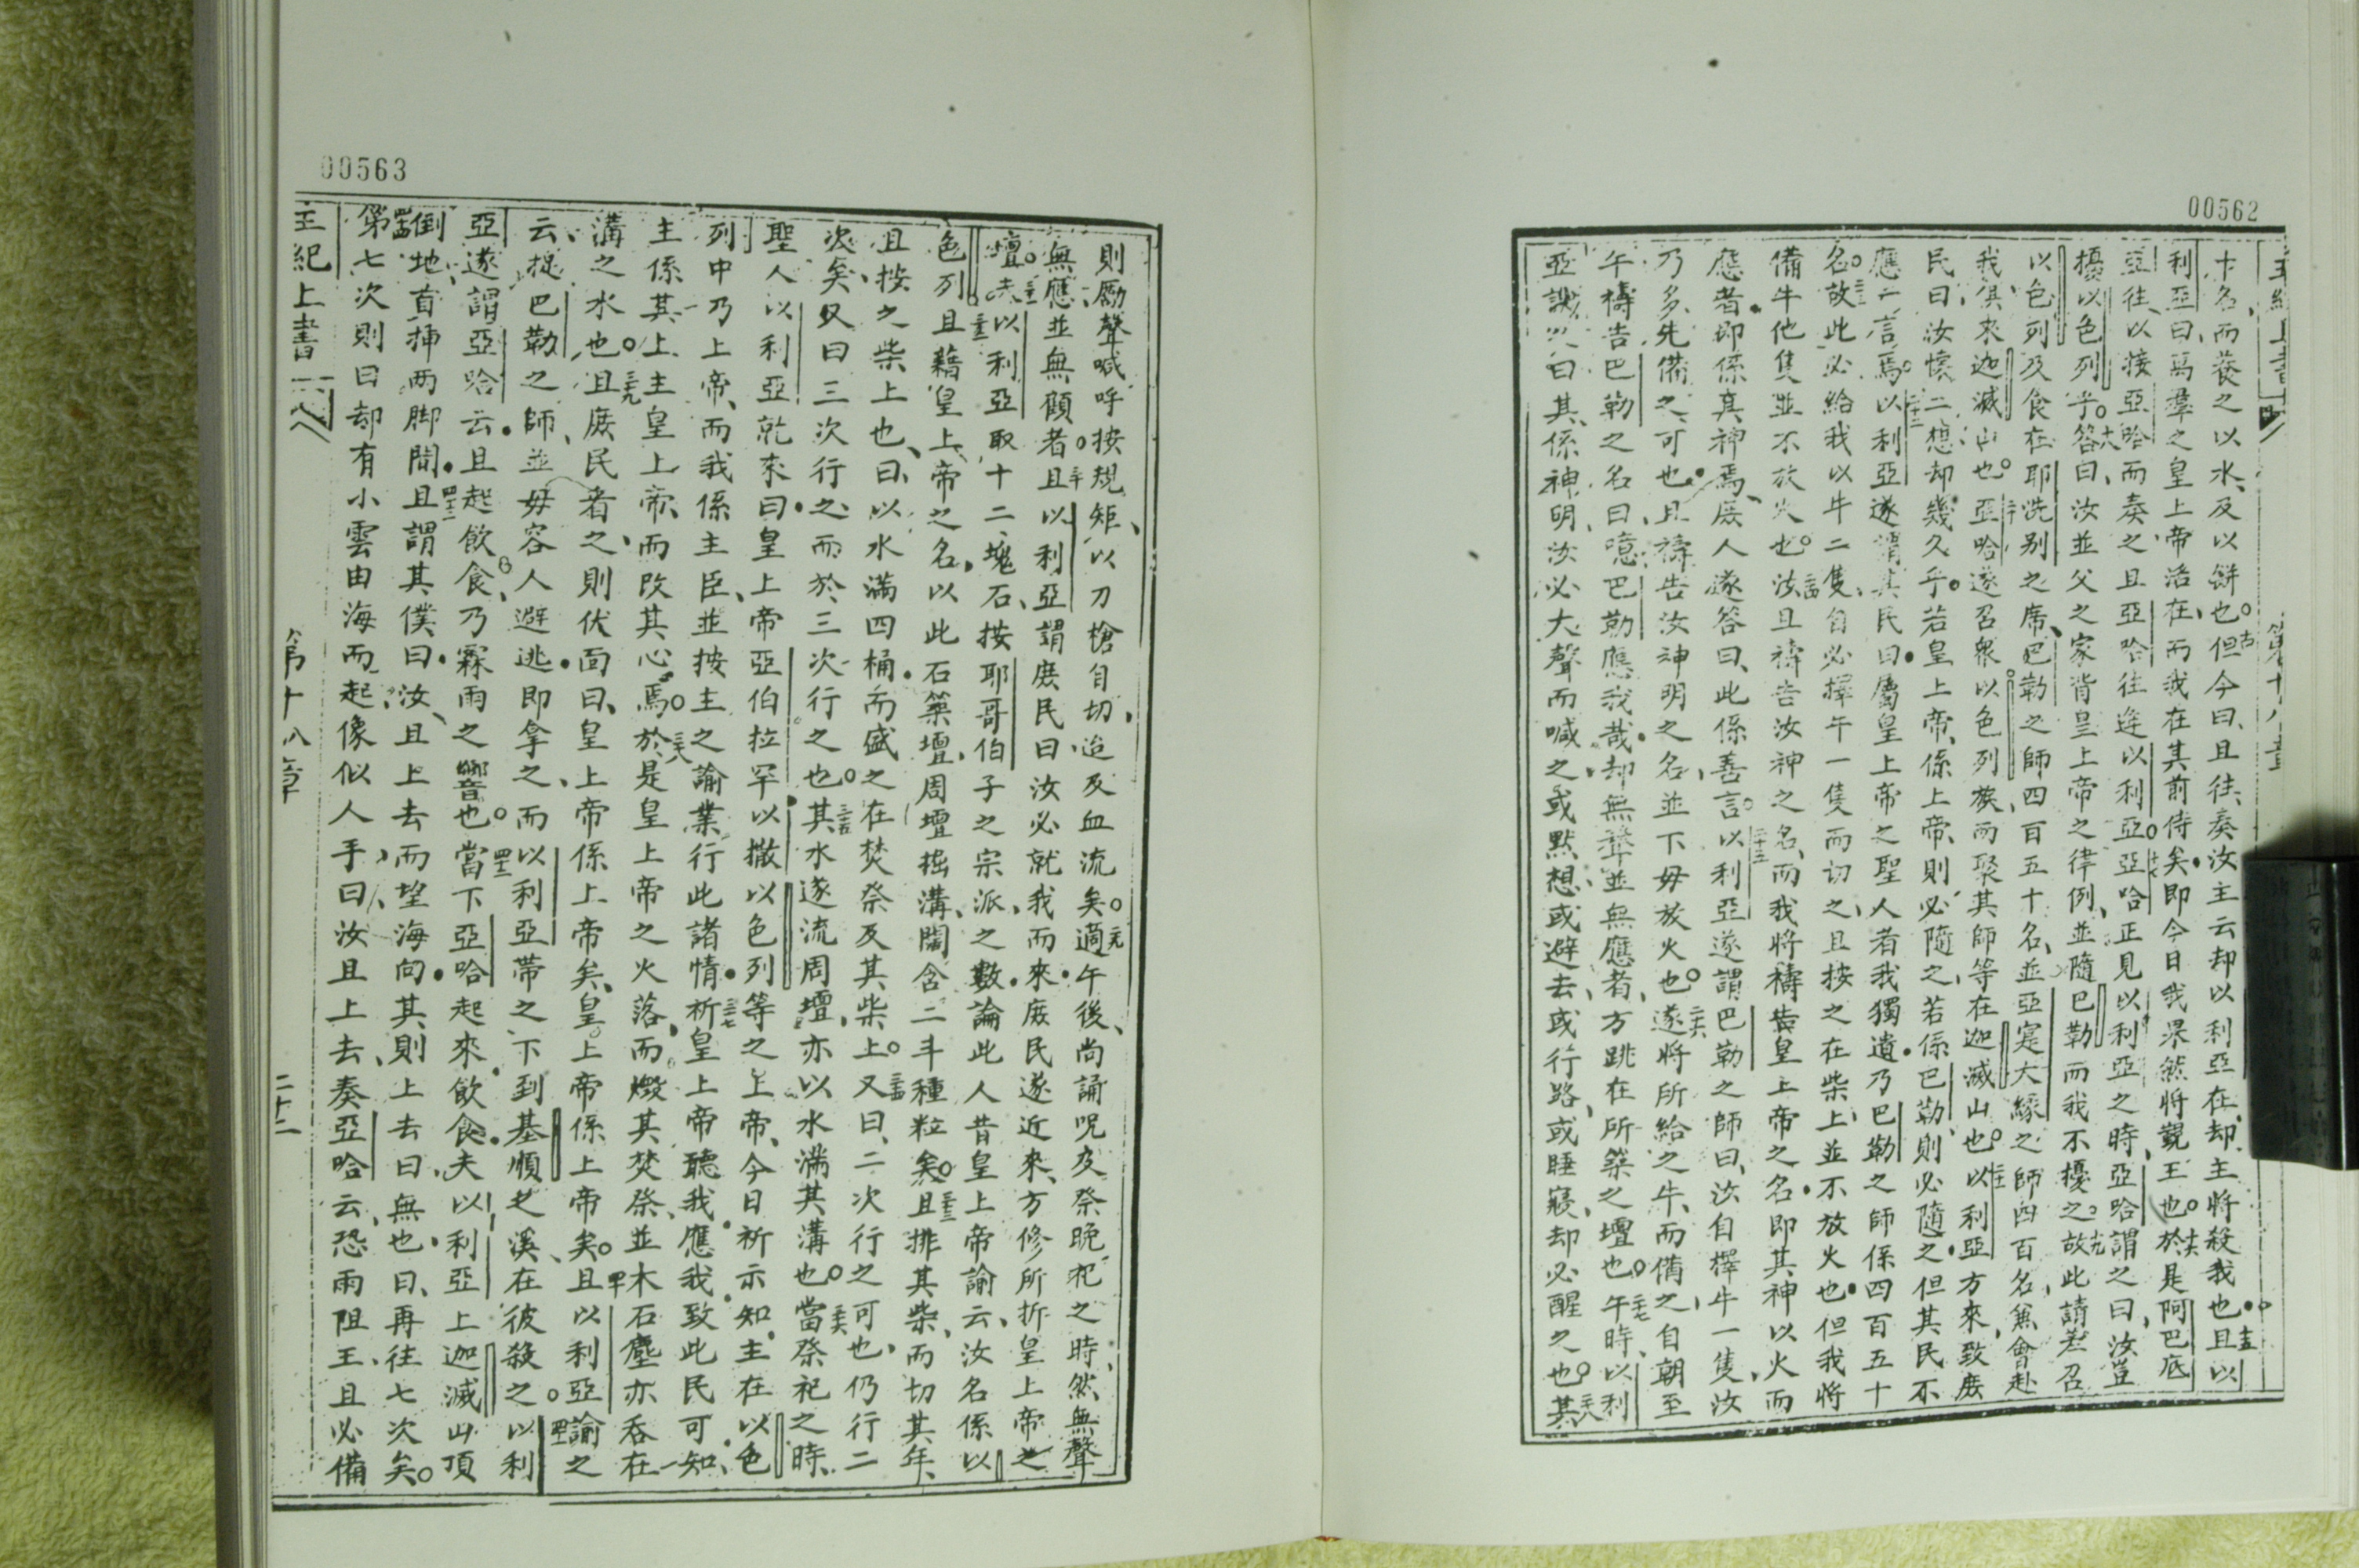 00562
十名、而養之以水、及以餅也。十四但今曰、且往、奏汝主云、却以利亞在、却主將殺我也。十五且以
利亞曰、萬羣之皇上帝活在、而我在其前侍矣、即今日我果然將覲王也。十六於是阿巴底
亞往、以接亞哈而奏之、且亞哈往迎以利亞。十七亞哈正見以利亞之時、亞哈謂之曰、汝豈
擾以色列乎。十八答曰、汝並父之家背皇上帝之律例、並隨巴勒、而我不擾之。十九故此請差召
以色列及食在耶洗别之席、巴勒之師四百五十名、並亞寔大綠之師四百名、兼會赴
我、俱來迦滅山也。二十亞哈遂召衆以色列族、而聚其師等在迦滅山也。二十一以利亞方來、致庶
民曰、汝懷二想却幾久乎。若皇上帝係上帝、則必隨之、若係巴勒、則必隨之、但其民不
應一言焉。二十二以利亞遂謂其民曰、屬皇上帝之聖人者我獨遺、乃巴勒之師係四百五十
名。二十三故此必給我以牛二隻、自必擇牛一隻而切之、且按之在柴上、並不放火也、但我將
備牛他隻並不放火也。二十四汝且禱告汝神之名、而我將禱告皇上帝之名、即其神以火而
應者、即係真神焉、庶人遂答曰、此係善言。二十五以利亞遂謂巴勒之師曰、汝自擇牛一隻、汝
乃多、先備之可也、且禱告汝神明之名、並下毋放火也。二十六遂將所給之牛、而備之、自朝至
午禱告巴勒之名曰、噫、巴勒應我哉、却無聲並無應者、方跳在所築之壇也。二十七午時、以利
亞譏之曰、其係神明、汝必大聲而喊之、或默想、或避去、或行路、或睡寢、却必醒之也。二十八其
00563
則勵聲喊呼、按規矩、以刀槍自切、迨及血流矣。二十九適午後、尚誦呪及祭晚祀之時、然無聲
無應並無顧者。三十且以利亞謂庶民曰、汝必就我而來、庶民遂近來、方修所折皇上帝之
壇。三十一夫以利亞取十二塊石、按耶哥伯子之宗派之數、論此人昔皇上帝諭云、汝名係以
色列。三十二且藉皇上帝之名、以此石築壇、周壇掘溝、闊含二斗種粒矣。三十三且排其柴、而切其牛、
且按之柴上也、曰、以水滿四桶、而盛之在焚祭及其柴上。三十四又曰、二次行之可也、仍行二
次矣、又曰三次行之、而於三次行之也。三十五其水遂流周壇、亦以水滿其溝也。三十六當祭祀之時、
聖人以利亞就來曰、皇上帝亞伯拉罕以撒以色列等之上帝、今日祈示知、主在以色
列中乃上帝、而我係主臣、並按主之諭業行此諸情。三十七祈皇上帝聽我應我、致此民可知、
主係其上主皇上帝、而改其心焉。三十八於是皇上帝之火落、而燬其焚祭、並木石塵亦吞在
溝之水也。三十九且庶民看之、則伏面曰、皇上帝係上帝矣、皇上帝係上帝矣。四十且以利亞諭之
云、捉巴勒之師、並毋容人避逃、即拿之、而以利亞帶之下到基順之溪、在彼殺之。四十一以利
亞遂謂亞哈云、且起飲食、乃霖雨之響音也。四十二當下亞哈起來飲食、夫以利亞上迦滅山頂
倒地、首插兩脚間。四十三且謂其僕曰、汝且上去而望海向、其則上去曰、無也、曰、再往七次矣。
四十四第七次則曰、却有小雲由海而起、像似人手、曰、汝且上去、奏亞哈云、恐雨阻王、且必備
王紀上書 第十八章 二十二